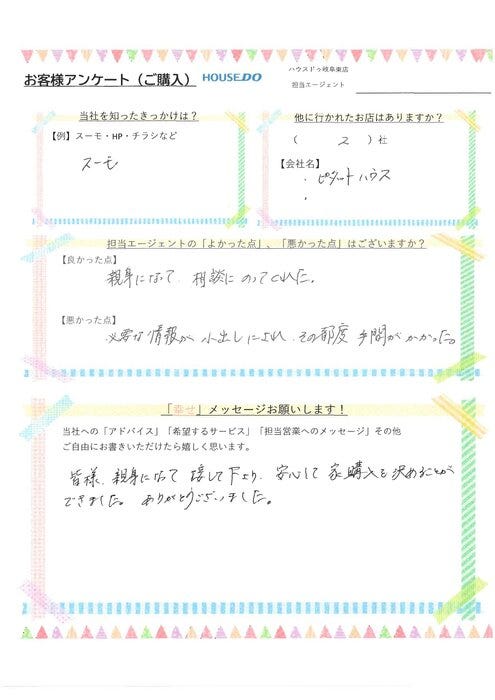 お客様アンケート（ご購入） HOUSEDO
ハウスドゥ岐阜東店
担当エージェント
当社を知ったきっかけは？
【例】スーモ・HP・チラシなど
スーモ
他に行かれたお店はありますか？
（ 2 ）社
【会社名】
・ピタットハウス
・
担当エージェントの「よかった点」、「悪かった点」はございますか？
【良かった点】
親身になって、相談にのってくれた。
【悪かった点】
必要な情報が小出しにされ、その都度手間がかかった。
「幸せ」メッセージお願いします！
当社への「アドバイス」「希望するサービス」「担当営業へのメッセージ」その他
ご自由にお書きいただけたら嬉しく思います。
皆様、親身になって接して下さり、安心して家購入を決めることが
できました。ありがとうございました。